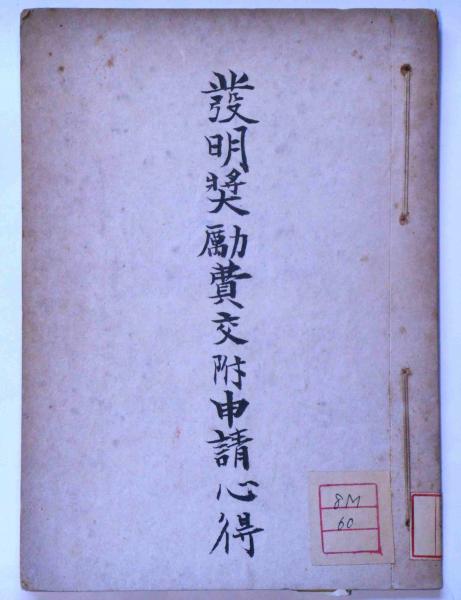 發明奬勵費交附申請心得
8M
60